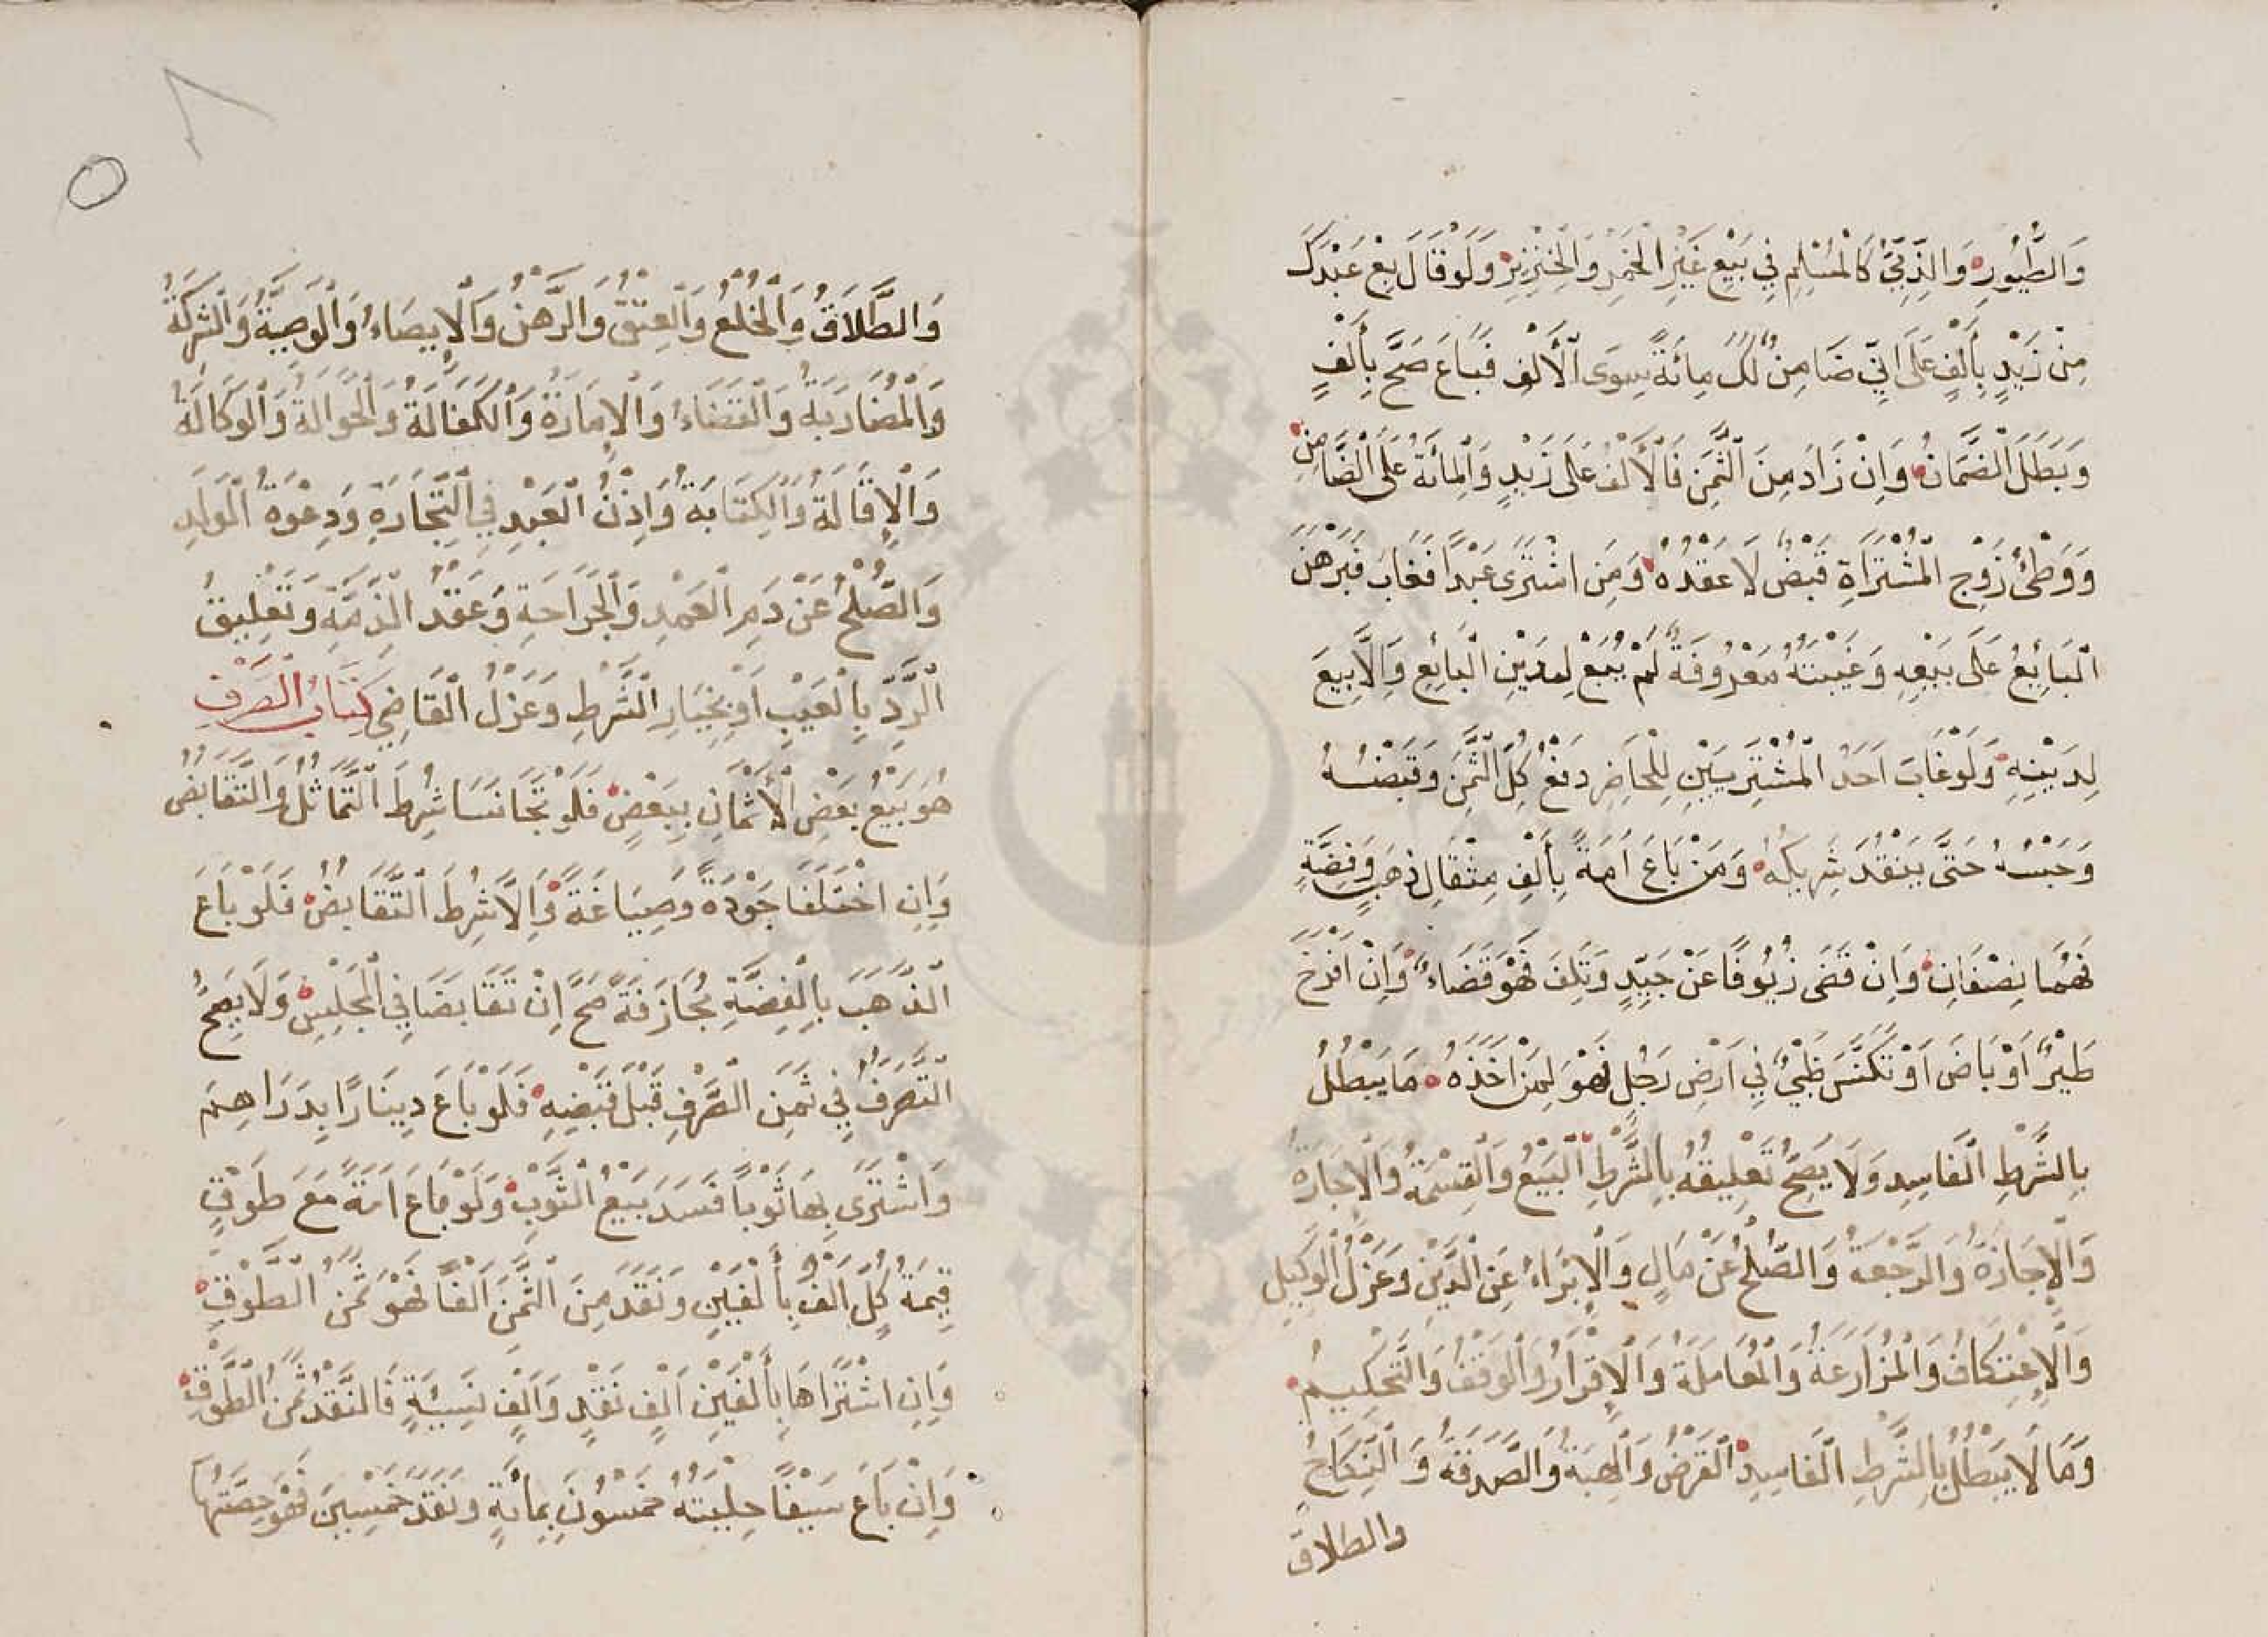 وَالطُّيُورِ وَالذِّمِّيُّ كَالْمُسْلِمِ فِي بَيْعِ غَيْرِ الْخَمْرِ وَالْخِنْزِيرِ وَلَوْ قَالَ بِعْ عَبْدَكَ
مِنْ زَيْدٍ بِأَلْفٍ عَلَى اَنِّي ضَامِنٌ لَكَ مِائَةً سِوَى الْأَلْفِ فَبَاعَ صَحَّ بِأَلْفٍ
وَبَطَلَ الضَّمَانُ وَاِنْ زَادَ مِنَ الثَّمَنِ فَالْأَلْفُ عَلَى زَيْدٍ وَالْمِائَةُ عَلَى الضَّامِنِ
وَوَطْئُ زَوْجِ الْمُشْتَرَاةِ قَبْضٌ لَا عَقْدُهُ وَمَنِ اشْتَرَى عَبْدًا فَغَابَ فَبَرْهَنَ
الْبَائِعُ عَلَى بَيْعِهِ وَغَيْبَتُهُ مَعْرُوفَةٌ لَمْ يُبَعْ لِدَيْنِ الْبَائِعِ وَاِلَّا بِيعَ
لِدَيْنِهِ وَلَوْ غَابَ اَحَدُ الْمُشْتَرِيَيْنِ لِلْحَاضِرِ دَفْعُ كُلِّ الثَّمَنِ وَقَبْضُهُ
وَحَبْسُهُ حَتَّى يَنْقُدَ شَرِيكُهُ وَمَنْ بَاعَ اَمَةً بِأَلْفِ مِثْقَالِ ذَهَبٍ وَفِضَّةٍ
فَهُمَا نِصْفَانِ وَاِنْ قَضَى زُيُوفًا عَنْ جَيِّدٍ وَتَلِفَ فَهُوَ قَضَاءٌ وَاِنْ اَفْرَخَ
طَيْرٌ اَوْ بَاضَ اَوْ تَكَنَّسَ ظَبْيٌ فِي اَرْضِ رَجُلٍ فَهُوَ لِمَنْ اَخَذَهُ مَا يَبْطُلُ
بِالشَّرْطِ الْفَاسِدِ وَلَا يَصِحُّ تَعْلِيقُهُ بِالشَّرْطِ الْبَيْعُ وَالْقِسْمَةُ وَالْإِجَارَةُ
وَالْإِجَازَةُ وَالرَّجْعَةُ وَالصُّلْحُ عَنْ مَالٍ وَالْإِبْرَاءُ عَنِ الدَّيْنِ وَعَزْلُ الْوَكِيلِ
وَالْإِعْتِكَافُ وَالْمُزَارَعَةُ وَالْمُعَامَلَةُ وَالْإِقْرَارُ وَالْوَقْفُ وَالتَّحْكِيمُ
وَمَا لَا يَبْطُلُ بِالشَّرْطِ الْفَاسِدِ الْقَرْضُ وَالْهِبَةُ وَالصَّدَقَةُ وَالنِّكَاحُ
والطلاق
وَالطَّلَاقُ وَالْخُلْعُ وَالْعِتْقُ وَالرَّهْنُ وَالْإِيصَاءُ وَالْوَصِيَّةُ وَالشَّرِكَةُ
وَالْمُضَارَبَةُ وَالْقَضَاءُ وَالْإِمَارَةُ وَالْكَفَالَةُ وَالْحَوَالَةُ وَالْوَكَالَةُ
وَالْإِقَالَةُ وَالْكِتَابَةُ وَاِذْنُ الْعَبْدِ فِي التِّجَارَةِ وَدِعْوَةُ الْوَلَدِ
وَالصُّلْحُ عَنْ دَمِ الْعَمْدِ وَالْجَرَاحَةِ وَعَقْدُ الذِّمَّةِ وَتَعْلِيقُ
الرَّدِّ بِالْعَيْبِ اَوْ بِخِيَارِ الشَّرْطِ وَعَزْلُ الْقَاضِي كِتَابُ الصَّرْفِ
هُوَ بَيْعُ بَعْضِ الْأَثْمَانِ بِبَعْضٍ فَلَوْ تَجَانَسَا شُرِطَ التَّمَاثُلُ وَالتَّقَابُضُ
وَاِنِ اخْتَلَفَا جَوْدَةً وَصِيَاغَةً وَاِلَّا شُرِطَ التَّقَابُضُ فَلَوْ بَاعَ
الذَّهَبَ بِالْفِضَّةِ مُجَازَفَةً صَحَّ اِنْ تَقَابَضَا فِي الْمَجْلِسِ وَلَا يَصِحُّ
التَّصَرُّفُ فِي ثَمَنِ الصَّرْفِ قَبْلَ قَبْضِهِ فَلَوْ بَاعَ دِينَارًا بِدَرَاهِمَ
وَاشْتَرَى بِهَا ثَوْبًا فَسَدَ بَيْعُ الثَّوْبِ وَلَوْ بَاعَ اَمَةً مَعَ طَوْقٍ
قِيمَةُ كُلٍّ اَلْفٌ بِأَلْفَيْنِ وَنَقَدَ مِنَ الثَّمَنِ اَلْفًا فَهُوَ ثَمَنُ الطَّوْقِ
وَاِنِ اشْتَرَاهَا بِأَلْفَيْنِ اَلْفٍ نَقْدٍ وَاَلْفٍ نَسِيئَةٍ فَالنَّقْدُ ثَمَنُ الطَّوْقِ
وَاِنْ بَاعَ سَيْفًا حِلْيَتُهُ خَمْسُونَ بِمِائَةٍ وَنَقَدَ خَمْسِينَ فَهُوَ حِصَّتُهَا